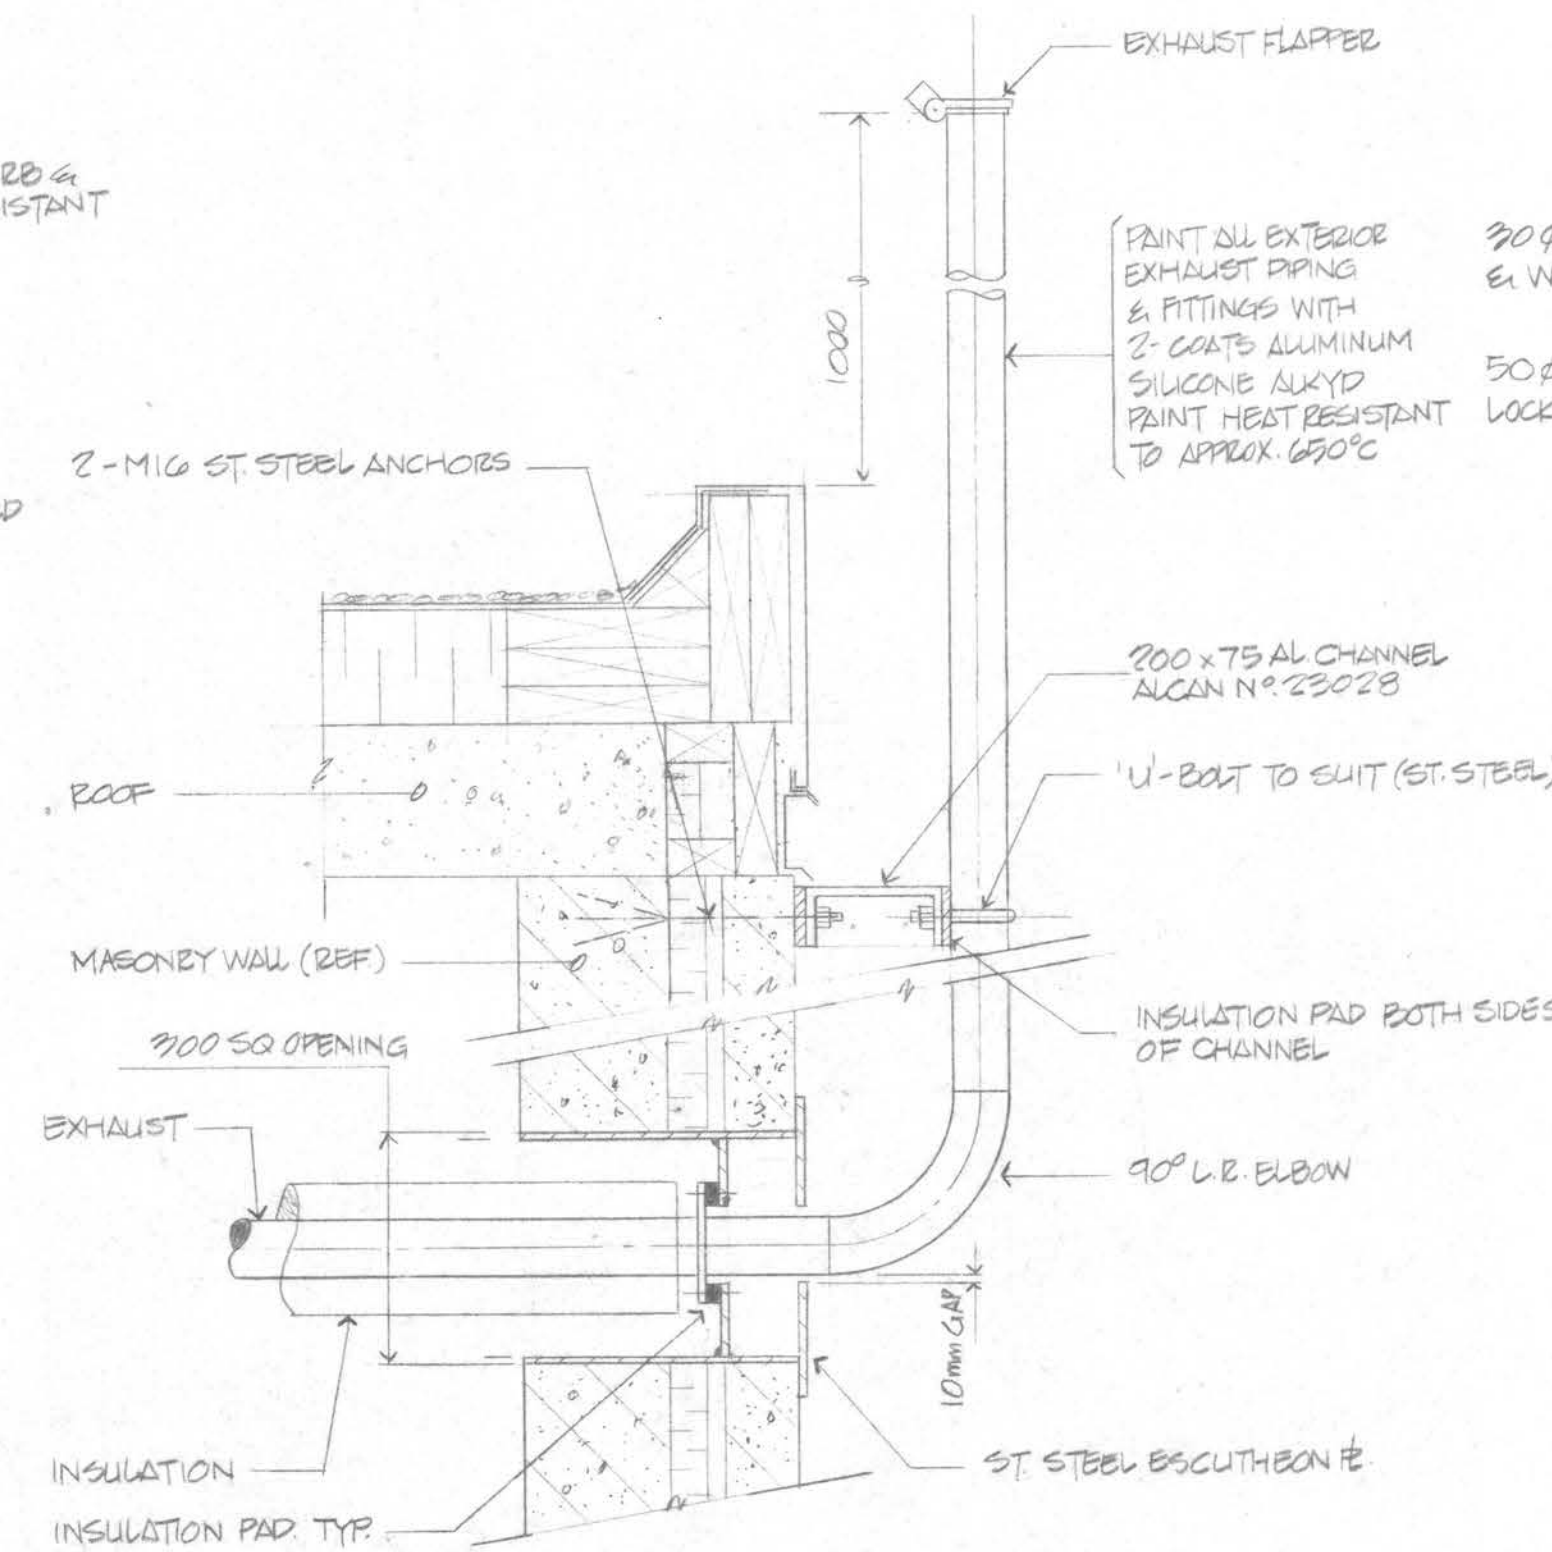 EXHAUST FLAPPER
RB &
ISTANT
PAINT ALL EXTERIOR
EXHAUST PIPING
& FITTINGS WITH
2-COATS ALUMINUM
SILICONE ALKYD
PAINT HEAT RESISTANT
TO APPROX. 650°C
30 Ø
& W
50 Ø
LOCK
1000
2-M16 ST. STEEL ANCHORS
D
200 x 75 AL. CHANNEL
ALCAN Nº. 23028
'U'-BOLT TO SUIT (ST. STEEL)
ROOF
MASONRY WALL (REF.)
INSULATION PAD BOTH SIDES
OF CHANNEL
300 SQ OPENING
EXHAUST
90° L.R. ELBOW
10mm GAP
INSULATION
ST. STEEL ESCUTHEON PL
INSULATION PAD. TYP.